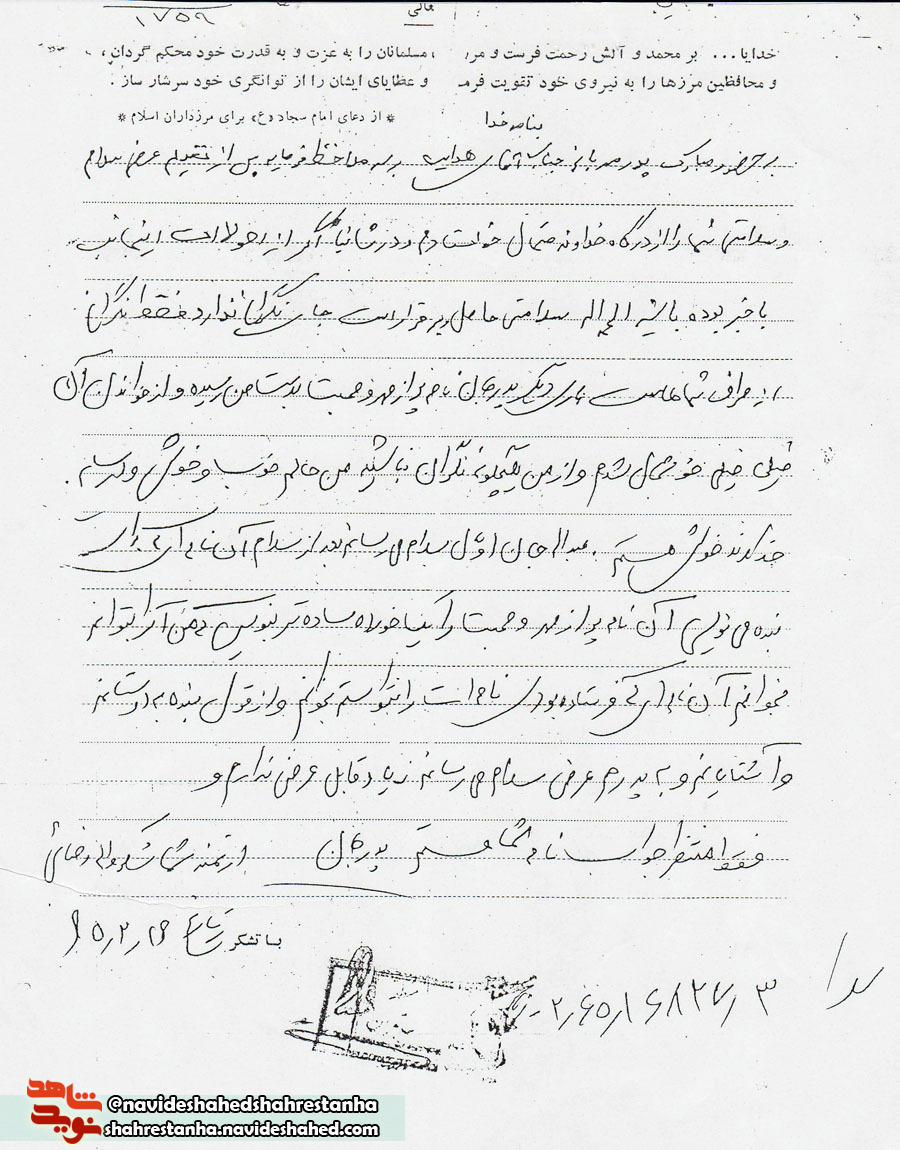 ۱۷۵۹
خدایا... بر محمد و آلش رحمت فرست و مرز مسلمانان را به عزت و به قدرت خود محکم گردان،
و محافظین مرزها را به نیروی خود تقویت فرما و عطایای ایشان را از توانگری خود سرشار ساز.
* از دعای امام سجاد (ع) برای مرزداران اسلام *
بنام خدا
به حضور مبارک پدر مهربانم جناب آقای برسد ملاحظه فرماید پس از تقدیم عرض سلام
و سلامتی شما را از درگاه خداوند متعال خواستارم و در ثانیا اگر از احوالات اینجانب
با خبر بوده باشید الحمداله سلامتی حاصل و برقرار است جای نگرانی ندارد فقط نگران
از طرف شما هاست باری دیگر پدر جان نامه پر از مهر و محبت بدست من رسیده و از خواندن آن
خیلی خیلی خوشحال شدم و از من هیچگونه نگران نباشید من حالم خوب و خوش و
خوش هستم. جان اول سلام می رسانم بعد از سلام آن نامه ای که برای
بنده می نویسی آن نامه پر از مهر و محبت را یک ساده تر بنویس که من آنرا بتوانم
بخوانم آن نامه ای که فرستاده بودی نامه ات را نتوانستم بخوانم و از قول بنده به دوستانم
و آشنایانم و به پدرم عرض سلام می رسانم زیاد قابل عرض ندارم و
فقط منتظر جواب نامه شما هستم پدر جان
با تشکر
@navideshahedshahrestanha
shahrestanha.navideshahed.com
نوید شاهد